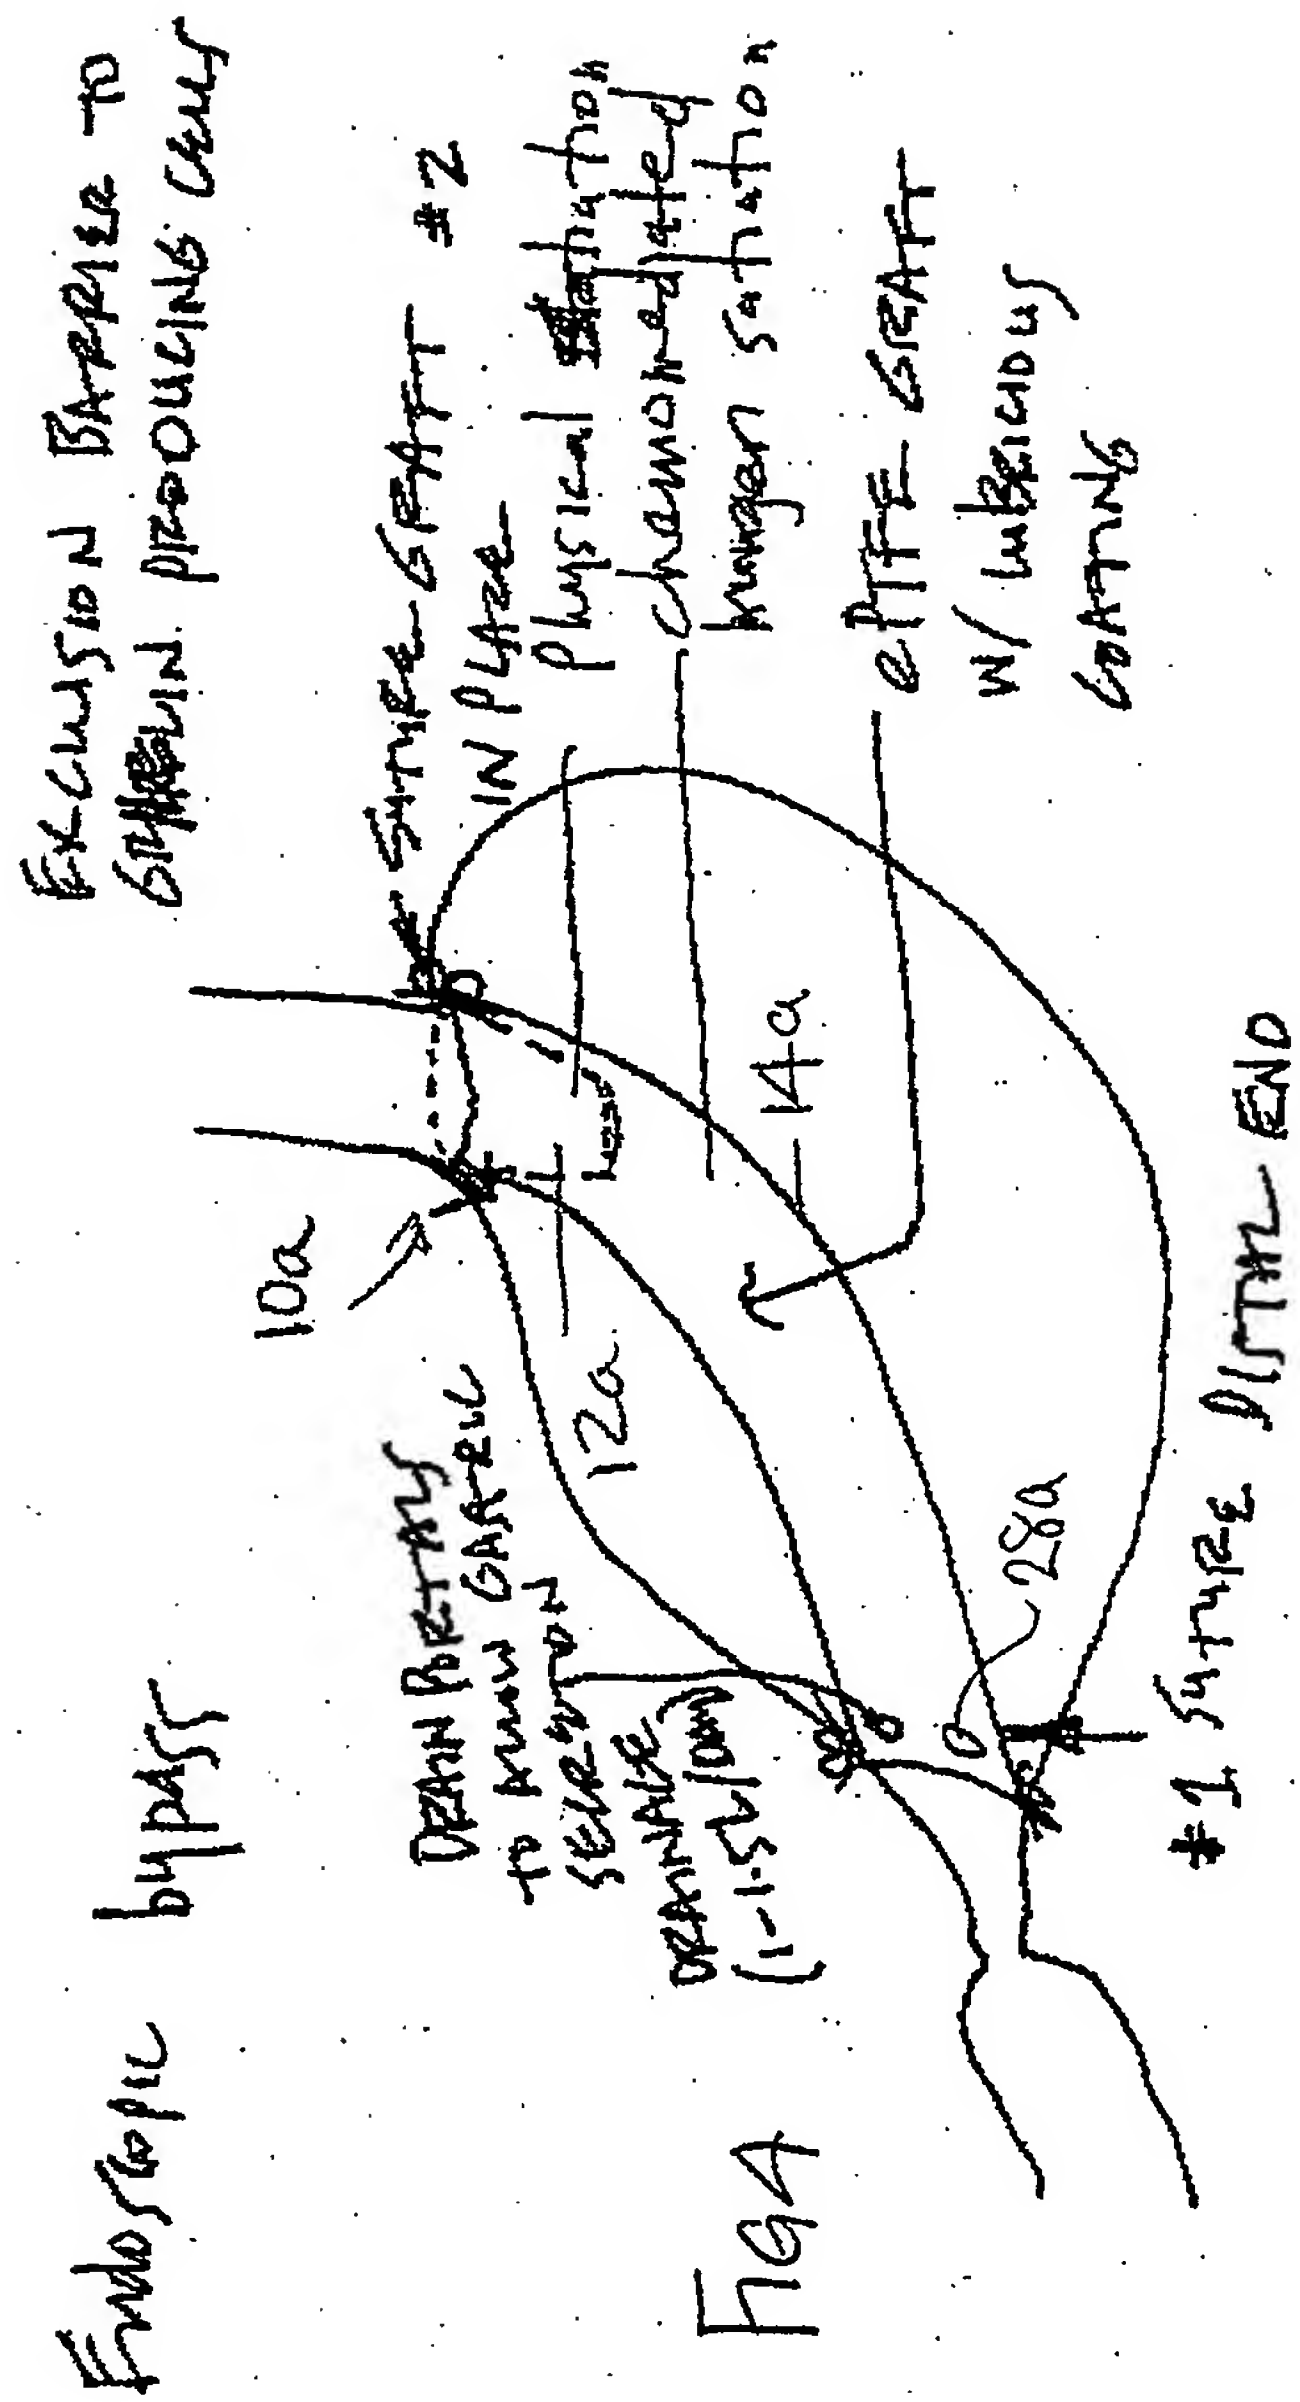 Endoscopic bypass
EXCLUSION BARRIER TO
GHRELIN PRODUCING CELLS
10a
DRAIN PORTALS
TO ALLOW GASTRIC
SECRETION
DRAINAGE
(1-1.5L/DAY)
12a
SUTURE GRAFT #2
IN PLACE
Physical satiation
hunger satiation
14a
ePTFE GRAFT
W/ LUBRICIOUS
COATING
28a
#1 SUTURE DISTAL END
FIG 4